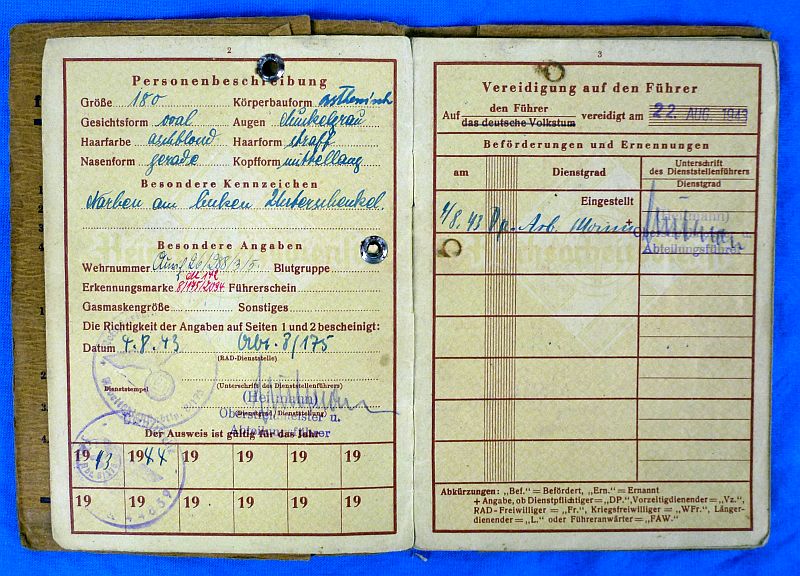 2
Personenbeschreibung
Größe 180 Körperbauform asthenisch
Gesichtsform oval Augen dunkelgrau
Haarfarbe aschblond Haarform straff
Nasenform gerade Kopfform mittellang
Besondere Kennzeichen
Narben am linken Unterschenkel.
Besondere Angaben
Wehrnummer 26/28/3/5. Blutgruppe
Erkennungsmarke 8/175/2094 Führerschein
Gasmaskengröße Sonstiges
Die Richtigkeit der Angaben auf Seiten 1 und 2 bescheinigt:
Datum 4.8.43 Abt. 8/175
(RAD-Dienststelle)
Dienststempel (Unterschrift des Dienststellenführers)
(Heitmann)
Oberstfeldmeister u.
Abteilungsführer
Der Ausweis ist gültig für das Jahr
1943 1944 19 19 19 19
19 19 19 19 19 19
3
Vereidigung auf den Führer
Auf den Führer
das deutsche Volkstum vereidigt am 22. AUG. 1943
Beförderungen und Ernennungen
am Dienstgrad Unterschrift des Dienststellenführers Dienstgrad
Eingestellt
4/8.43 Dp.- Arb. +
(Heitmann)
Abteilungsführer
Abkürzungen: „Bef.“ = Befördert, „Ern.“ = Ernannt
+ Angabe, ob Dienstpflichtiger = „DP.“, Vorzeitigdienender = „Vz.“,
RAD-Freiwilliger = „Fr.“, Kriegsfreiwilliger = „WFr.“, Länger-
dienender = „L.“ oder Führeranwärter = „FAW.“